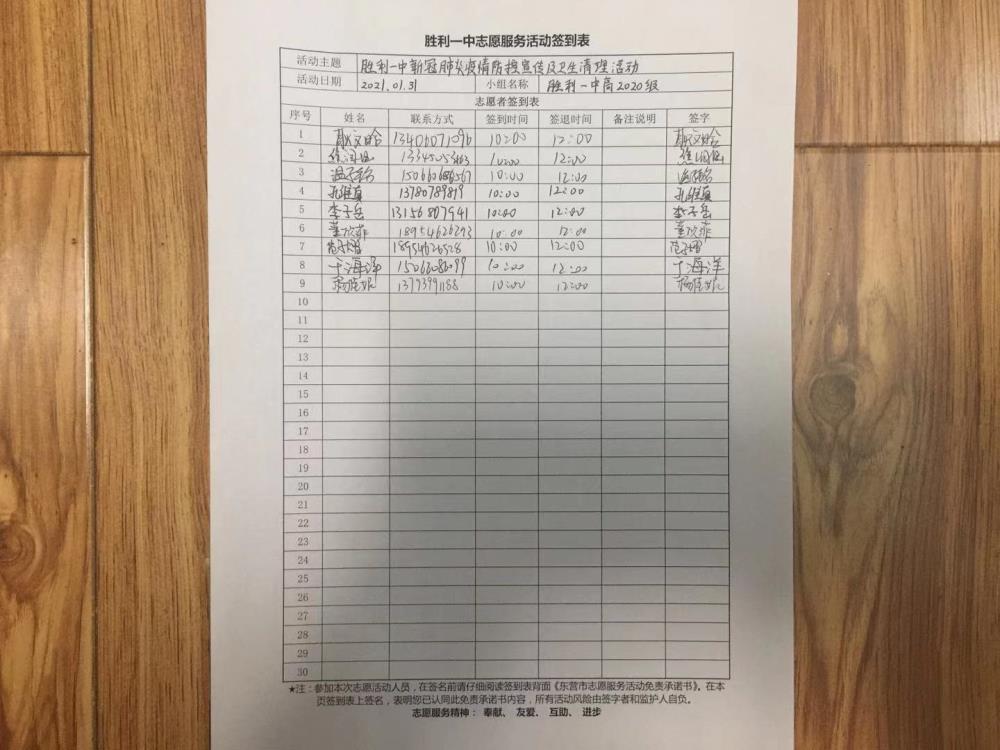 胜利一中志愿服务活动签到表
活动主题 胜利一中新冠肺炎疫情防控宣传及卫生清理活动
活动日期 2021.01.31 小组名称 胜利一中高2020级
志愿者签到表
序号 姓名 联系方式 签到时间 签退时间 备注说明 签字
1 13406071096 10:00 12:00
2 10:00 12:00
3 10:00 12:00
4 13780789819 10:00 12:00
5 李子岳 13156807941 10:00 12:00 李子岳
6 18954626293 10:00 12:00
7 18954626528 10:00 12:00
8 于海洋 15066086099 10:00 12:00 于海洋
9 13793991188 10:00 12:00
10
11
12
13
14
15
16
17
18
19
20
21
22
23
24
25
26
27
28
29
30
★注：参加本次志愿活动人员，在签名前请仔细阅读签到表背面《东营市志愿服务活动免责承诺书》。在本
页签到表上签名，表明您已认同此免责承诺书内容，所有活动风险由签字者和监护人自负。
志愿服务精神： 奉献、 友爱、 互助、 进步